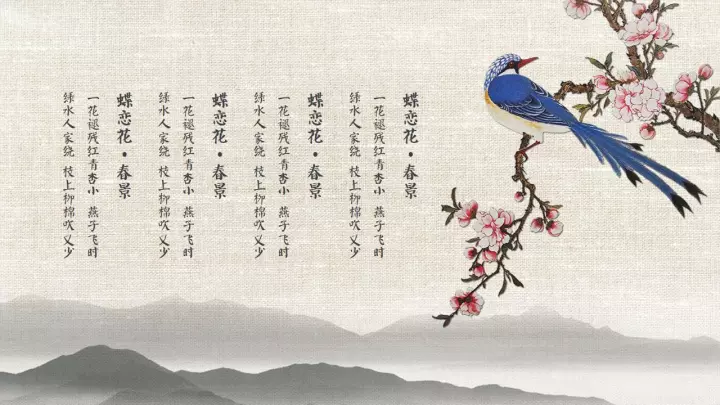 蝶恋花·春景
一花褪残红青杏小 燕子飞时
绿水人家绕 枝上柳棉吹又少
蝶恋花·春景
一花褪残红青杏小 燕子飞时
绿水人家绕 枝上柳棉吹又少
蝶恋花·春景
一花褪残红青杏小 燕子飞时
绿水人家绕 枝上柳棉吹又少
蝶恋花·春景
一花褪残红青杏小 燕子飞时
绿水人家绕 枝上柳棉吹又少